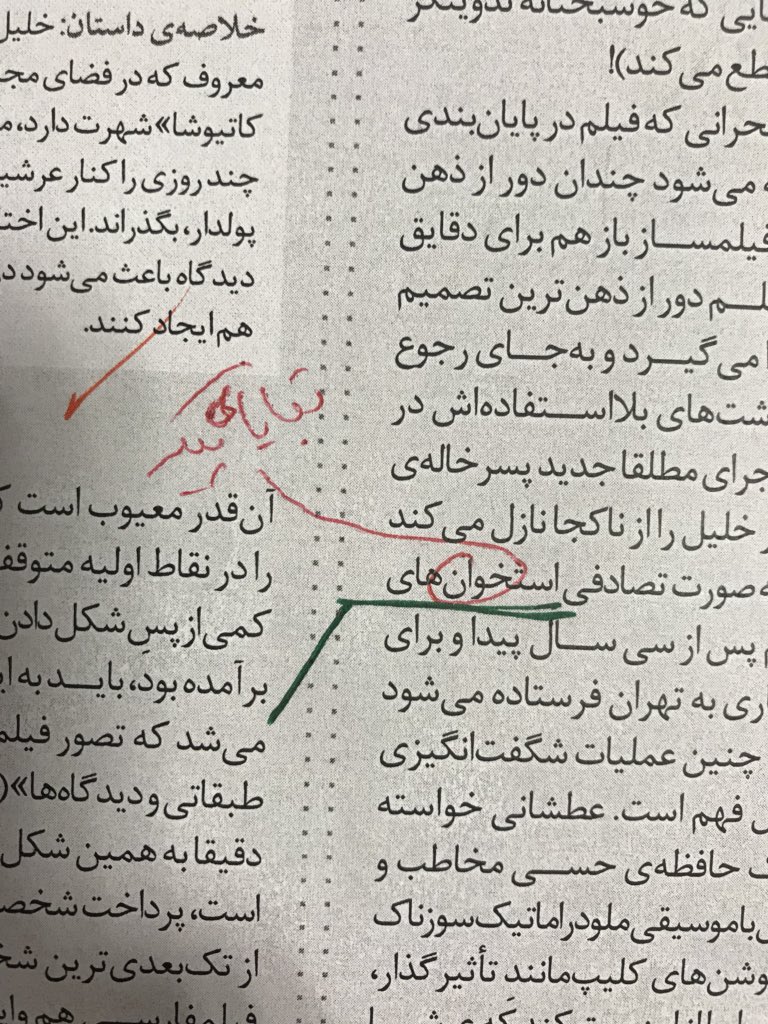 که خوشبختانه تدوینگر
می‌کند)!
که فیلم در پایان‌بندی
می‌شود چندان دور از ذهن
فیلمساز باز هم برای دقایق
دور از ذهن‌ترین تصمیم
می‌گیرد و به‌جای رجوع
بلااستفاده‌اش در
مطلقا جدید پسرخاله‌ی
خلیل را از ناکجا نازل می‌کند
صورت تصادفی استخوان‌های
پس از سی سال پیدا و برای
به تهران فرستاده می‌شود
چنین عملیات شگفت‌انگیزی
فهم است. عطشانی خواسته
حافظه‌ی حسی مخاطب و
با موسیقی ملودراماتیک سوزناک
کلیپ‌مانندِ تأثیرگذار،
خلاصه‌ی داستان: خلیل
معروف که در فضای
کاتیوشا» شهرت دارد،
چند روزی را کنار
پولدار، بگذراند. این
دیدگاه باعث می‌شود
هم ایجاد کنند.
بقایای
آن‌قدر معیوب است
را در نقاط اولیه
کمی از پسِ شکل دادن
برآمده بود، باید به
می‌شد که تصور
طبقاتی و دیدگاه‌ها»(
دقیقا به همین شکل
است، پرداخت
از تک‌بعدی‌ترین